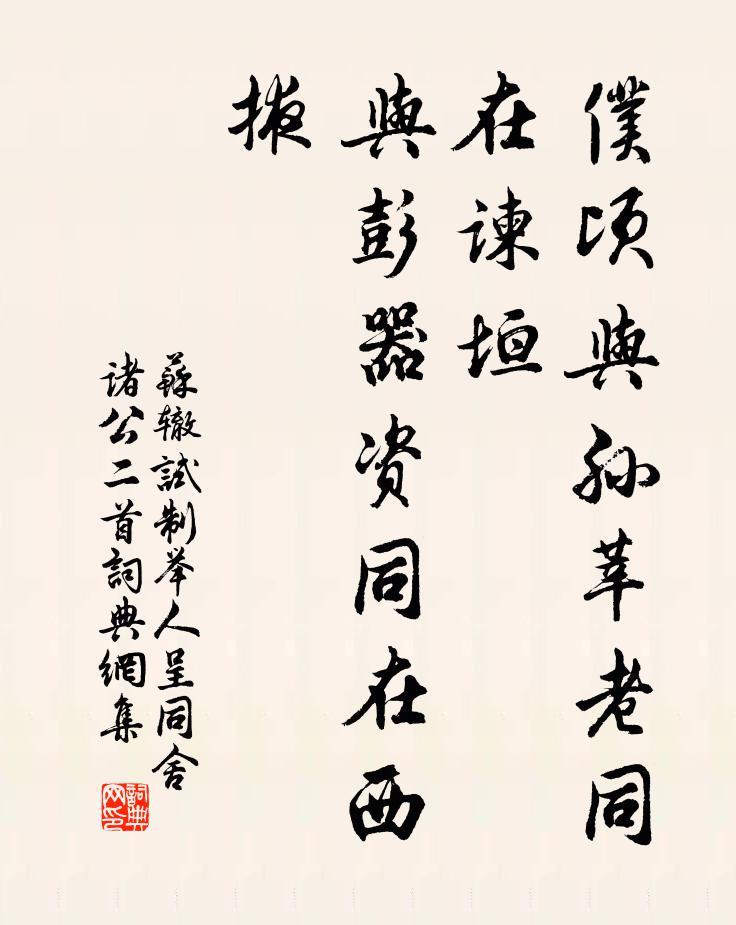 僕頃與孫莘老同
在諫垣
與彭器资同在西
掖
蘇辙試制举人呈同舍
诸公二首詞典網集
詞典網印